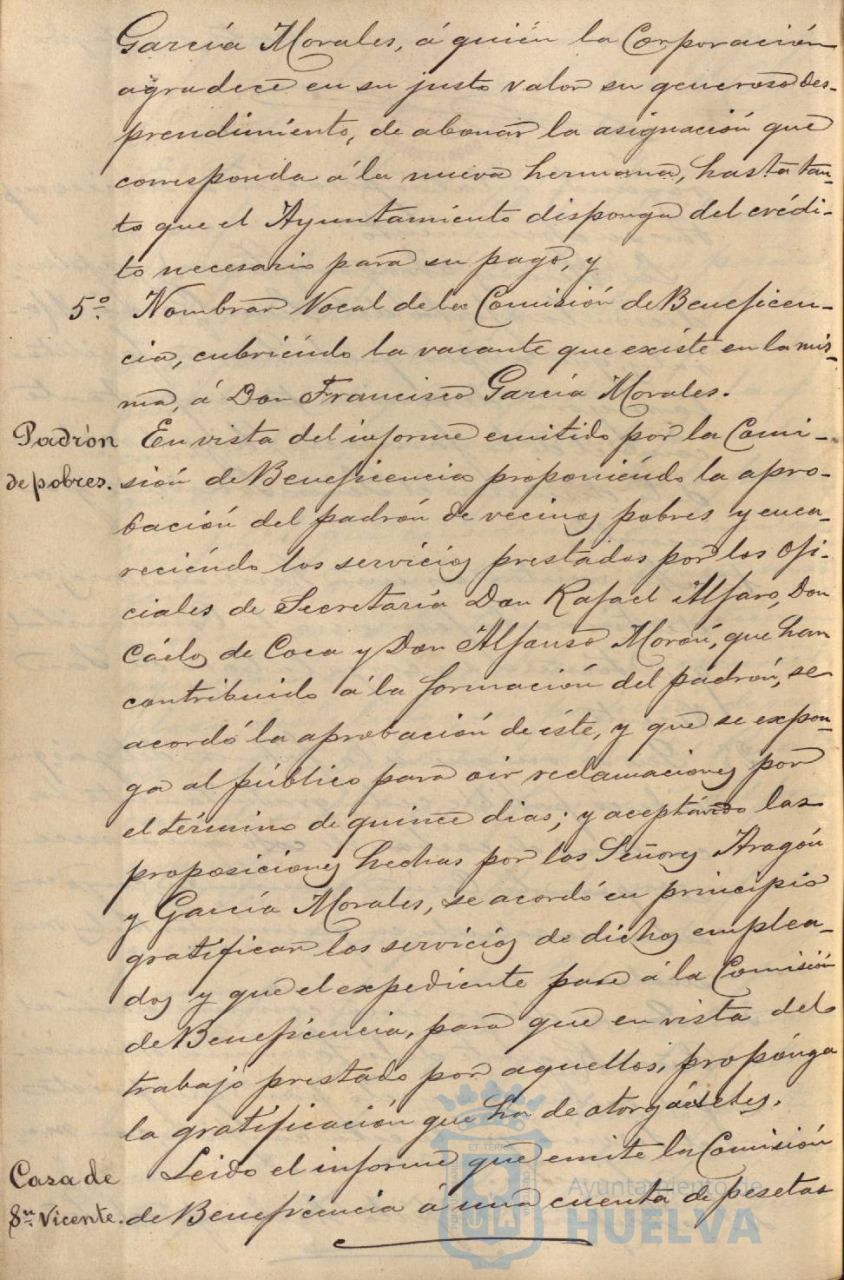 García Morales, á quién la Corporación
agradece en su justo valor su generoso des-
prendimiento, de abonar la asignación que
corresponda á la nueva hermana, hasta tan-
to que el Ayuntamiento disponga del crédi-
to necesario para su pago, y
5º Nombrar Vocal de la Comisión de Beneficen-
cia, cubriéndo la vacante que existe en la mis-
ma, á Don Francisco García Morales.
Padrón
de pobres.
En vista del informe emitido por la Comi-
sión de Beneficencia proponiéndo la apro-
bación del padrón de vecinos pobres y enca-
reciéndo los servicios prestados por los ofi-
ciales de Secretaría Don Rafael Alfaro, Don
Cárlos de Coca y Don Alfonso Morón, que han
contribuido á la formación del padrón, se
acordó la aprobación de éste, y que se expon-
ga al público para oir reclamaciones por
el término de quince dias; y aceptándo las
proposiciones hechas por los Señores Aragón
y García Morales, se acordó en principio
gratificar los servicios de dichos emplea-
dos y que el expediente pase á la Comisión
de Beneficencia, para que en vista del
trabajo prestado por aquellos, propónga
la gratificación que ha de otorgárseles.
Casa de
Sn. Vicente.
Leido el informe que emite la Comisión
de Beneficencia á una cuenta de pesetas
Ayuntamiento de
HUELVA